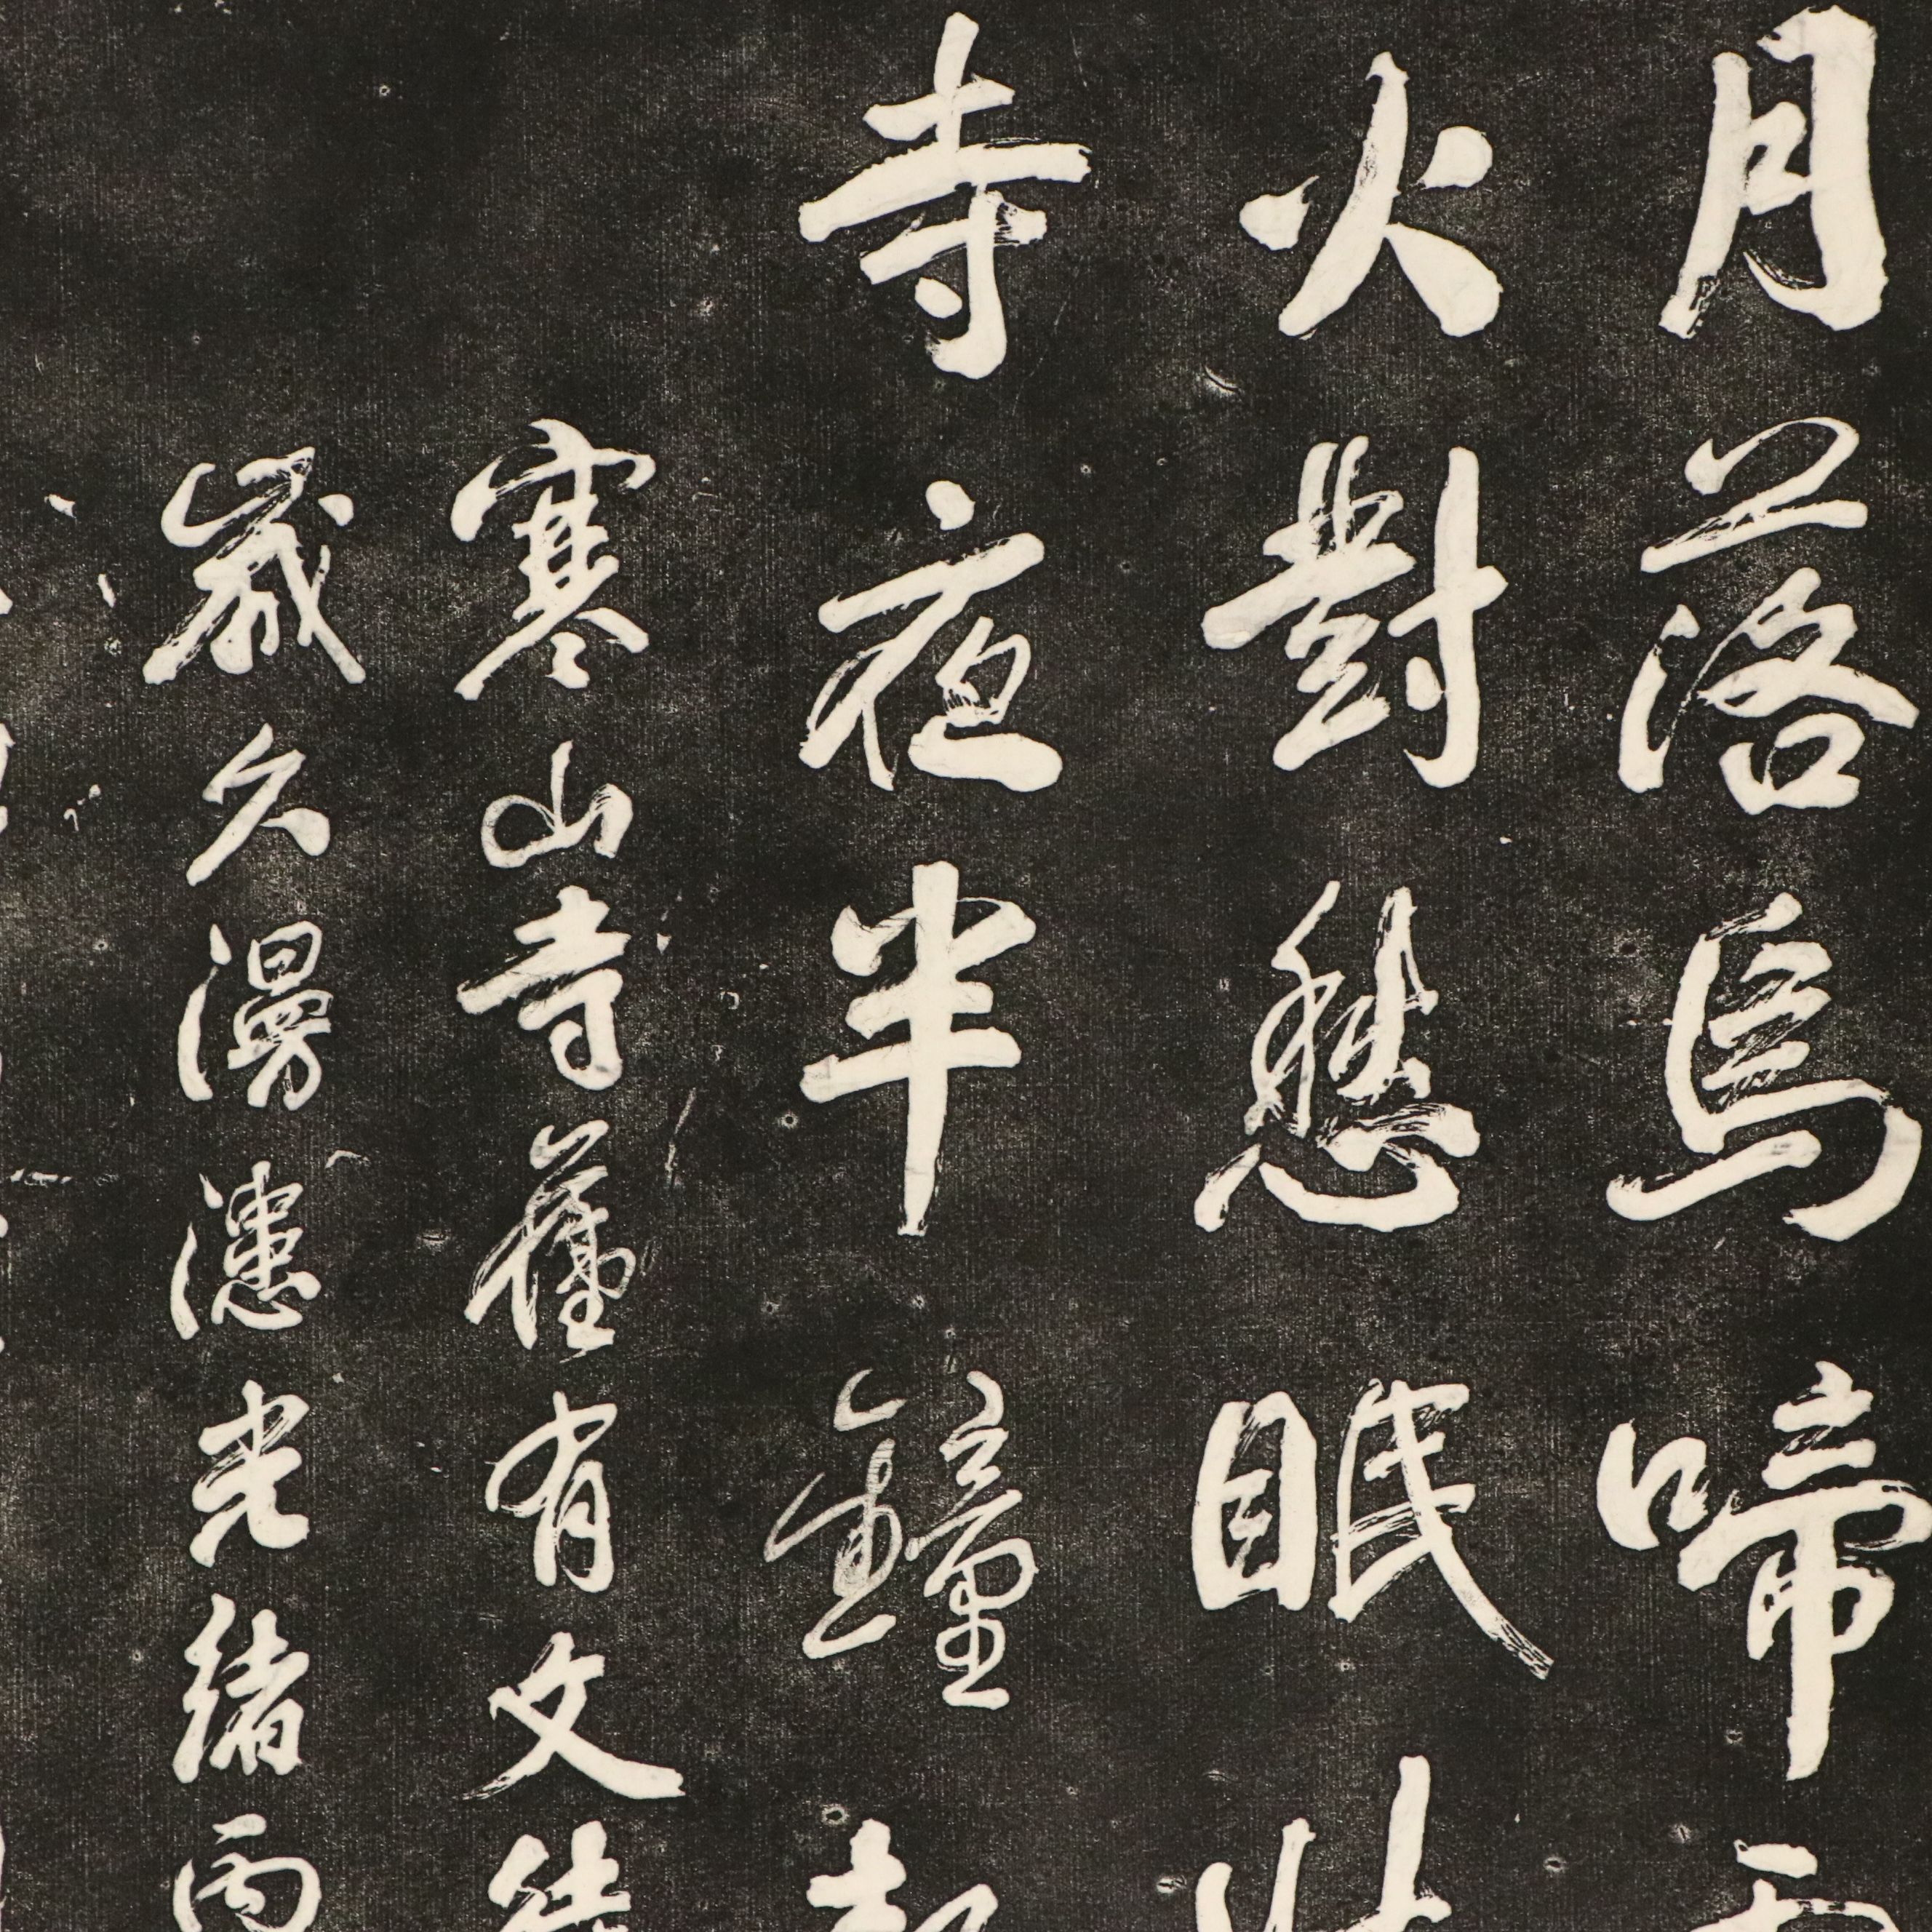 月落烏啼
火對愁眠
寺夜半鐘
寒山寺舊有文
歲久漫漶光緒丙